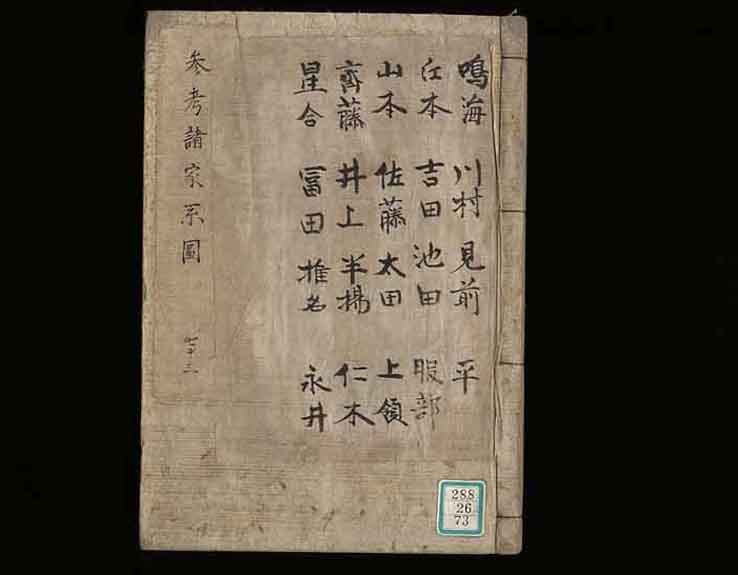 鳴海 川村 見前 平
丘本 吉田 池田 服部
山本 佐藤 太田 上領
齊藤 井上 半揚 仁木
星合 冨田 椎名 永井
参考諸家系圖 七十三
288
26
73